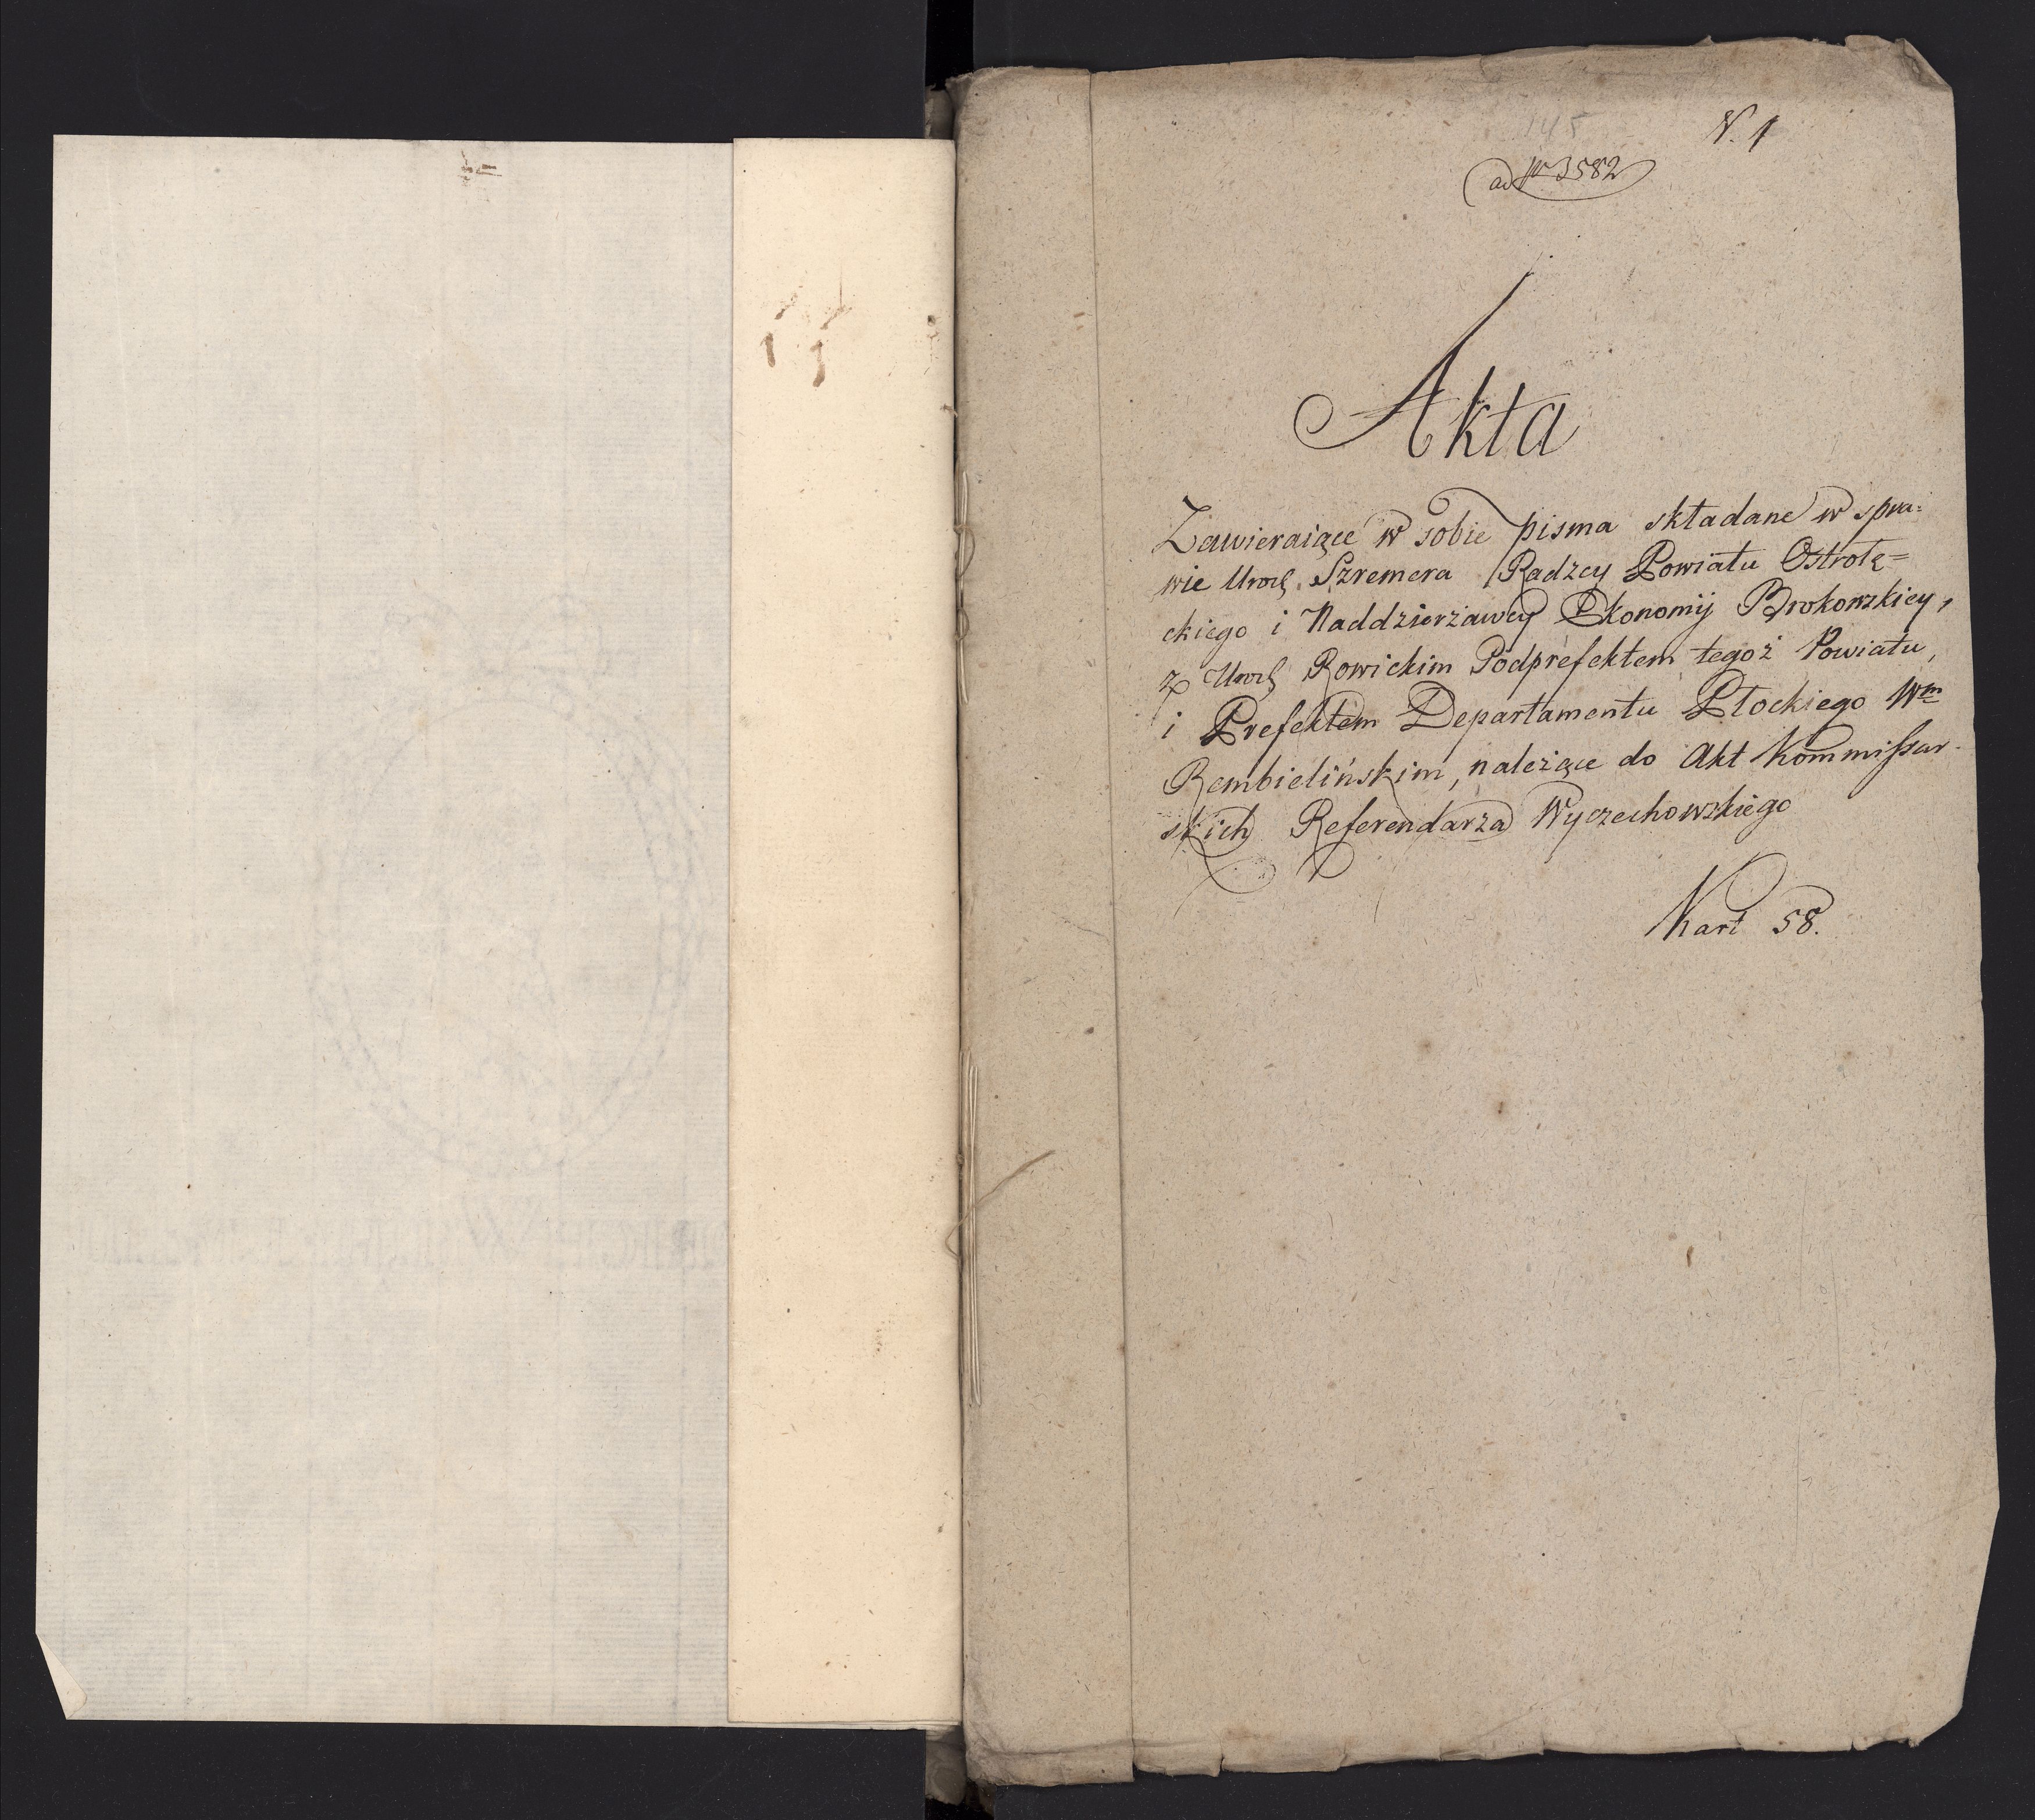 145
N. 1
ad Nr 3582
Akta
Zawieraiące w sobie pisma składane w spra=
wie Urodz. Szremera Radzcy Powiatu Ostrołę=
ckiego i Naddzierżawcy Ekonomij Brokowskiey,
z Urodz Rowickim Podprefektem tegoż Powiatu,
i Prefektem Departamentu Płockiego Wm
Rembielińskim, należące do Akt Kommissar=
skich Referendarza Wyczechowskiego
Kart 58.